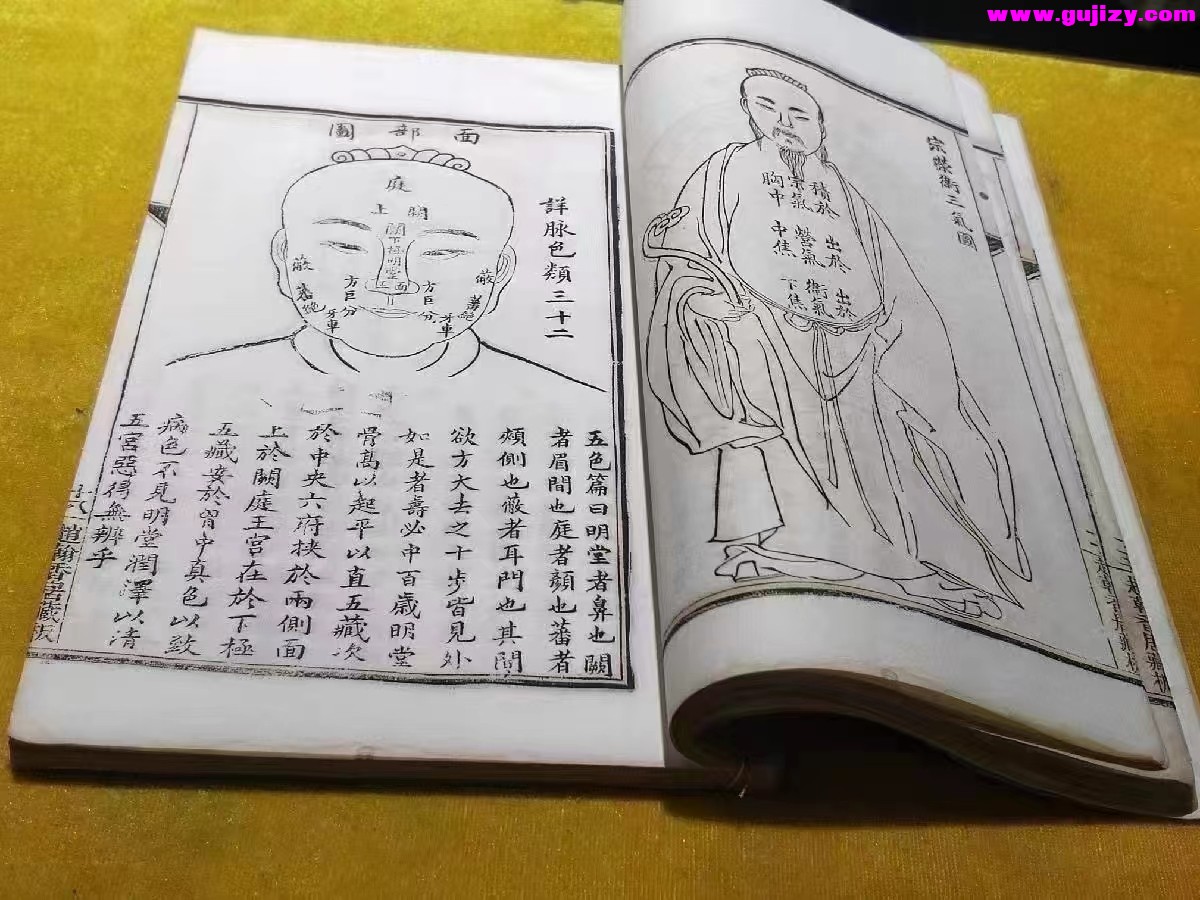 www.gujizy.com
面部圖
詳脉色類三十二
庭
闕上
闕下極明堂
面王
方巨分
方巨分
蔽
蔽
蕃
繞
牙車
牙車
五色篇曰明堂者鼻也闕
者眉間也庭者顏也蕃者
頰側也蔽者耳門也其間
欲方大去之十步皆見外
如是者壽必中百歲明堂
骨高以起平以直五藏次
於中央六府挾於兩側面
上於闕庭王宮在於下極
五藏安於胷中真色以致
病色不見明堂潤澤以清
五官惡得無辨乎
趙翰香居藏板
宗榮衛三氣圖
宗氣積於胸中
營氣出於中焦
衛氣出於下焦
趙翰香居藏板